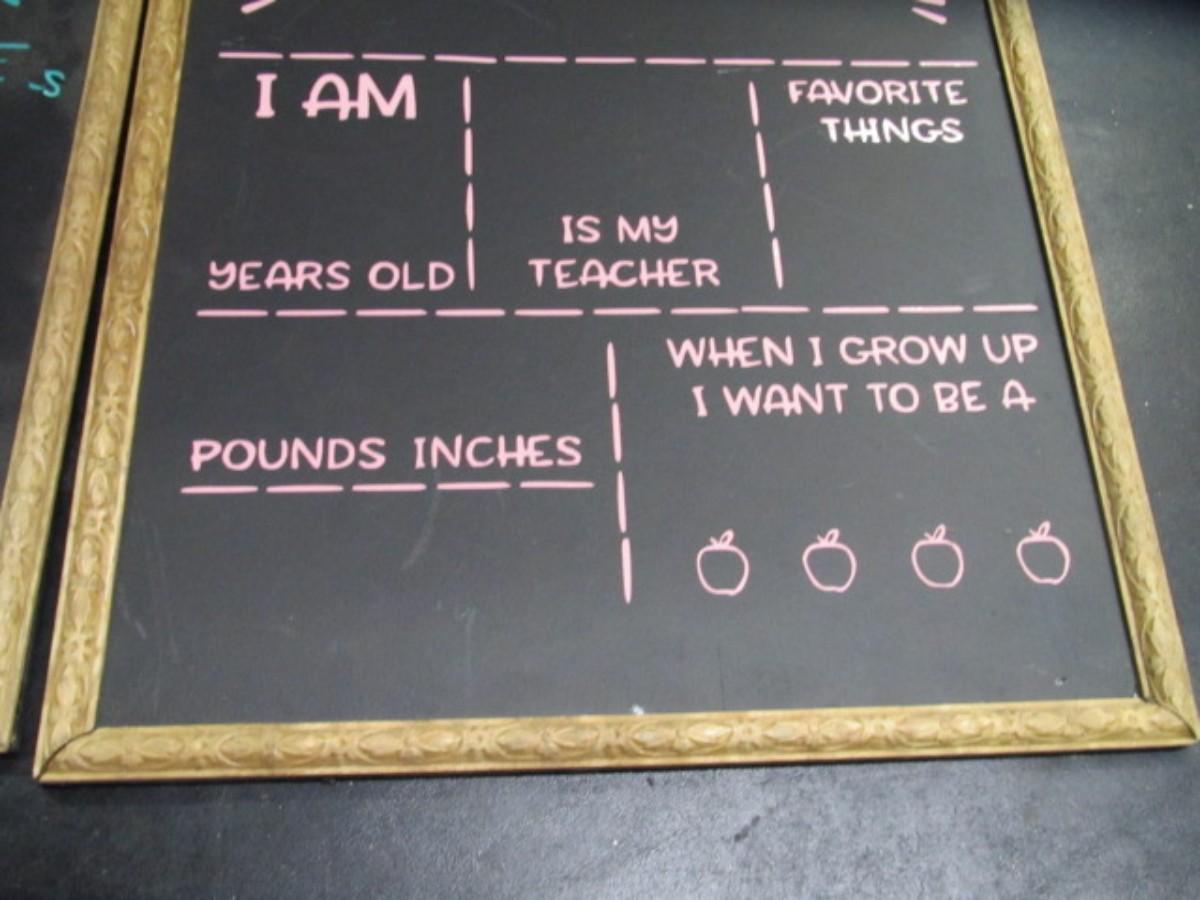 I AM
YEARS OLD
IS MY
TEACHER
FAVORITE
THINGS
POUNDS INCHES
WHEN I GROW UP
I WANT TO BE A